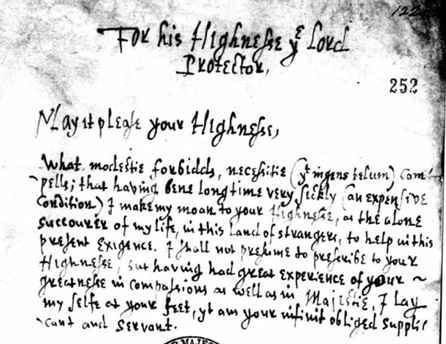 122
For his Highnesse yᵉ Lord
Protector,
252
May it please your Highnesse,
What modestie forbidds, necessitie (yᵗ ingens telum) com=
pells; that having bene long time very sickly (an expensive
Condition) I make my moan to your Highnesse, as the alone
succourer of my life, in this land of strangers, to help in this
present Exigence. I shall not presume to prescribe to your
Highnesse, but having had great experience of your
greatnesse in compassions as well as in Majestie, I lay
my selfe at your feet, yᵗ am your infinit obliged suppli=
cant and Servant.
MAJES